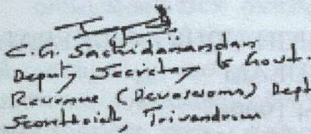 C. G. Sachidanandan
Deputy Secretary to Govt.
Revenue (Devaswoms) Dept
Secretariat, Trivandrum